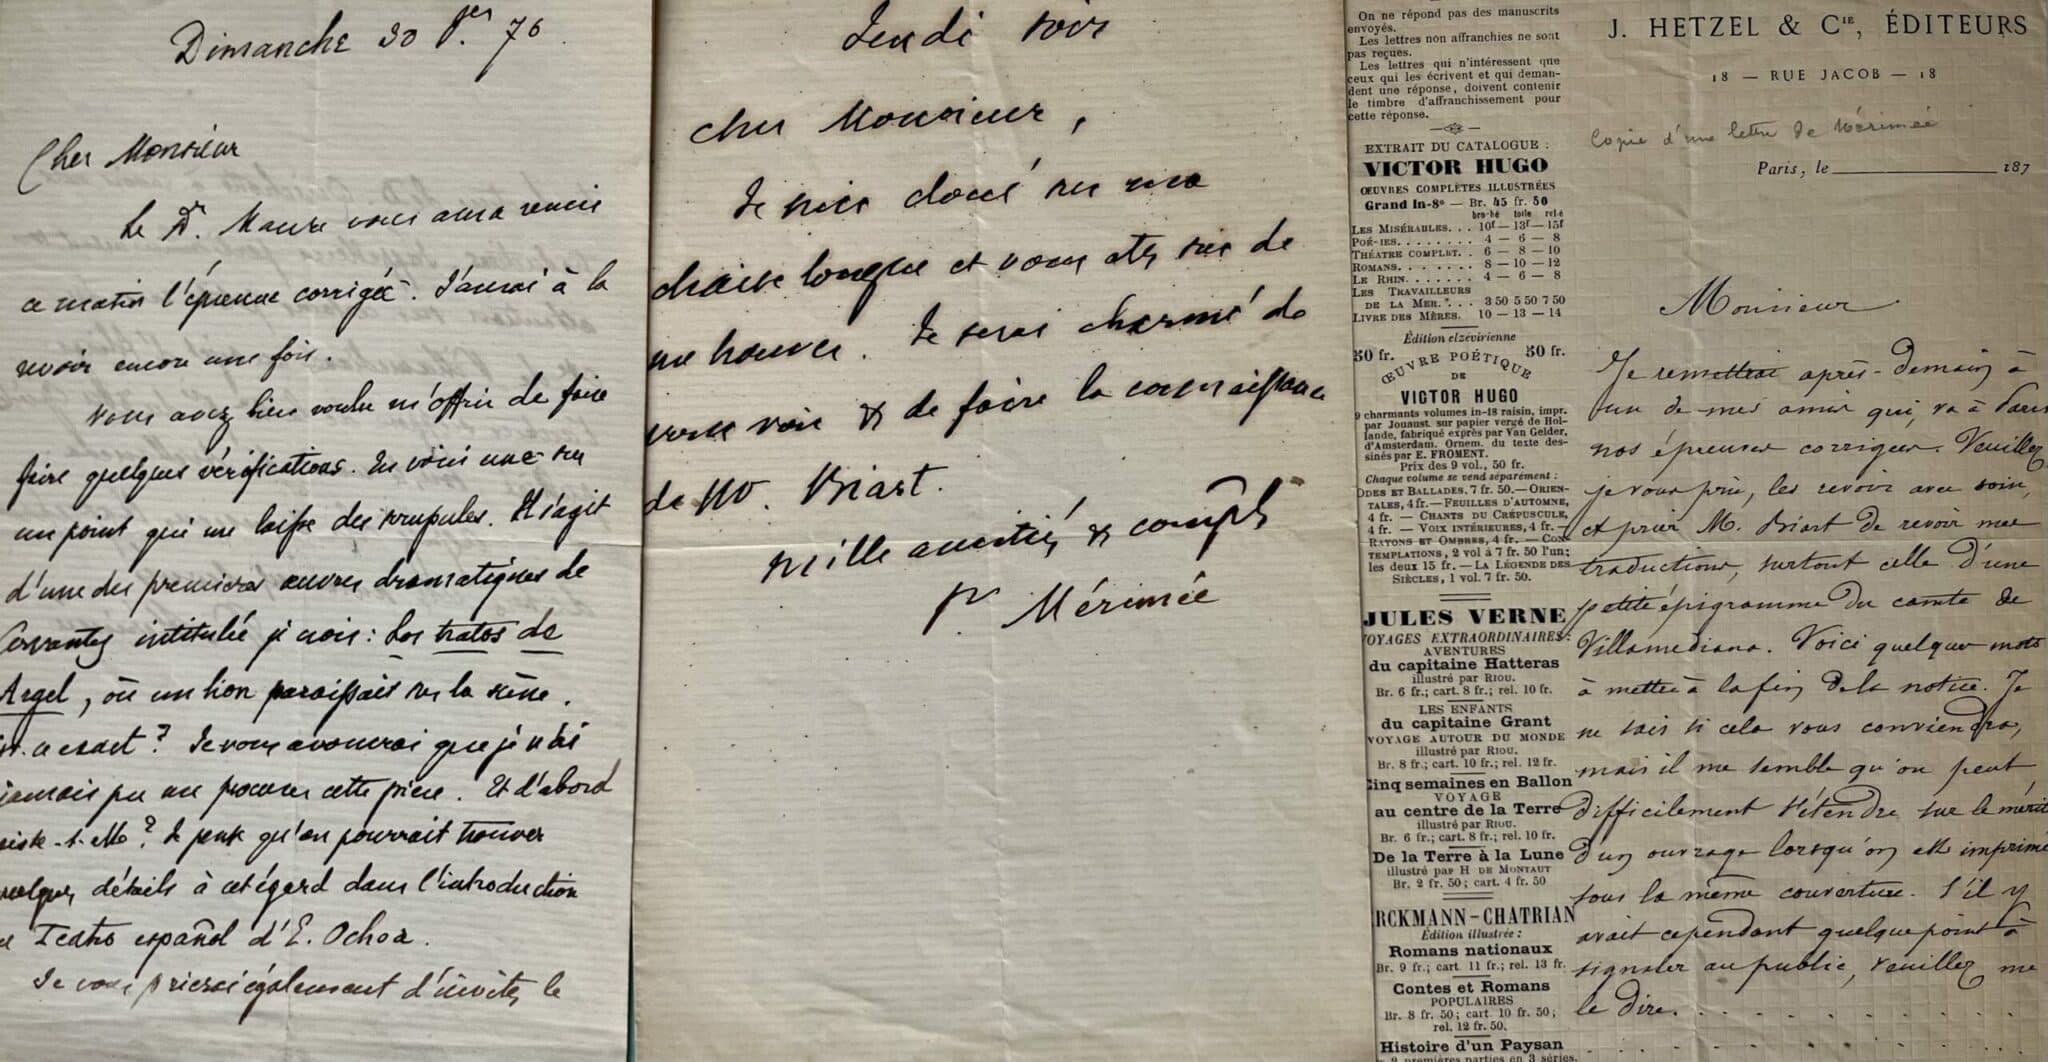 Dimanche 30 Jer 70
Cher Monsieur
Le Dr. Maure vous aura remis
ce matin l'épreuve corrigée. J'aurai à la
revoir encore une fois.
Vous avez bien voulu m'offrir de faire
faire quelques vérifications. En voici une sur
un point qui me laisse des scrupules. Il s'agit
d'une des premières œuvres dramatiques de
Cervantes intitulée je crois: Los tratos de
Argel, où un lion paraissait sur la scène.
exact? Je vous avouerai que je n'ai
jamais pu me procurer cette pièce. Et d'abord
existe-t-elle? Je pense qu'on pourrait trouver
quelques détails à cet égard dans l'introduction
Teatro español d'E. Ochoa.
Je vous prierai également d'inviter le
Jeudi soir
Cher Monsieur,
Je suis cloué sur ma
chaise longue et vous êtes sûr de
me trouver. Je serai charmé de
vous voir & de faire la connaissance
de M. Biart.
Mille amitiés & compts
Pr Mérimée
On ne répond pas des manuscrits
envoyés.
Les lettres non affranchies ne sont
pas reçues.
Les lettres qui n'intéressent que
ceux qui les écrivent et qui deman-
dent une réponse, doivent contenir
le timbre d'affranchissement pour
cette réponse.
EXTRAIT DU CATALOGUE :
VICTOR HUGO
ŒUVRES COMPLÈTES ILLUSTRÉES
Grand in-8° — Br. 45 fr. 50
broché toile relié
LES MISÉRABLES... 10f — 13f — 15f
POÉ-IES........ 4 — 6 — 8
THÉATRE COMPLET.. 6 — 8 — 10
ROMANS....... 8 — 10 — 12
LE RHIN....... 4 — 6 — 8
LES TRAVAILLEURS
DE LA MER.... 3 50 5 50 7 50
LIVRE DES MÈRES. 10 — 13 — 14
Édition elzévirienne
50 fr. ŒUVRE POÉTIQUE 50 fr.
DE
VICTOR HUGO
9 charmants volumes in-18 raisin, impr.
par Jouaust. sur papier vergé de Hol-
lande, fabriqué exprès par Van Gelder,
d'Amsterdam. Ornem. du texte des-
sinés par E. FROMENT.
Prix des 9 vol., 50 fr.
Chaque volume se vend séparément :
ODES ET BALLADES, 7 fr. 50. — ORIEN-
TALES, 4 fr. — FEUILLES D'AUTOMNE,
4 fr. — CHANTS DU CRÉPUSCULE,
4 fr. — VOIX INTÉRIEURES, 4 fr. —
RAYONS ET OMBRES, 4 fr. — CON-
TEMPLATIONS, 2 vol à 7 fr. 50 l'un;
les deux 15 fr. — LA LÉGENDE DES
SIÈCLES, 1 vol. 7 fr. 50.
JULES VERNE
VOYAGES EXTRAORDINAIRES:
AVENTURES
du capitaine Hatteras
illustré par RIOU.
Br. 6 fr.; cart. 8 fr.; rel. 10 fr.
LES ENFANTS
du capitaine Grant
VOYAGE AUTOUR DU MONDE
illustré par RIOU.
Br. 8 fr.; cart. 10 fr.; rel. 12 fr.
Cinq semaines en Ballon
VOYAGE
au centre de la Terre
illustré par RIOU.
Br. 6 fr.; cart. 8 fr.; rel. 10 fr.
De la Terre à la Lune
illustré par H DE MONTAUT
Br. 2 fr. 50; cart. 4 fr. 50
ERCKMANN-CHATRIAN
Édition illustrée :
Romans nationaux
Br. 9 fr.; cart. 11 fr.; rel. 13 fr.
Contes et Romans
POPULAIRES
Br. 8 fr. 50; cart. 10 fr. 50;
rel. 12 fr. 50.
Histoire d'un Paysan
premières parties en 3 séries.
J. HETZEL & CIE, ÉDITEURS
18 — RUE JACOB — 18
Copie d'une lettre de Mérimée
Paris, le 187
Monsieur
Je remettrai après-demain à
un de mes amis qui va à Paris
nos épreuves corrigées. Veuillez
je vous prie, les revoir avec soin,
et prier M. Biart de revoir mes
traductions, surtout celle d'une
petite épigramme du comte de
Villamediana. Voici quelques mots
à mettre à la fin de la notice. Je
ne sais si cela vous conviendra,
mais il me semble qu'on peut
difficilement s'étendre sur le mérite
d'un ouvrage lorsqu'on est imprimé
sous la même couverture. S'il y
avait cependant quelque point à
signaler au public, veuillez me
le dire. . . . . . . . .